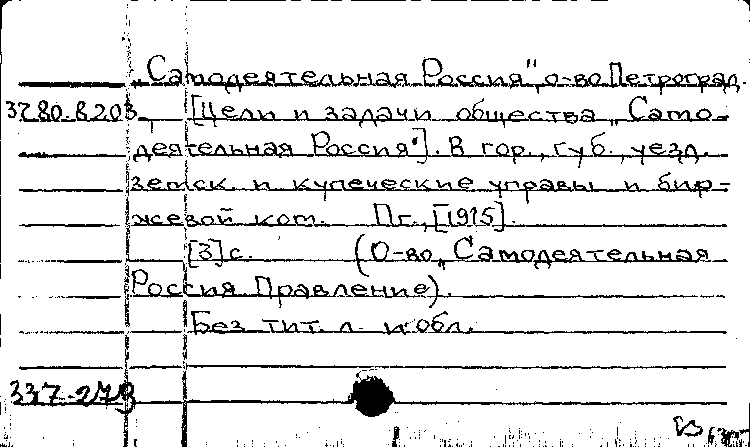 „Самодеятельная Россия", о-во. Петроград.
37.80.8.203. [Цели и задачи общества „Само-
деятельная Россия"]. В гор., губ., уезд.
земск. и купеческие управы и бир-
жевой ком. Пг., [1915].
[3]с. (О-во „Самодеятельная
Россия Правление).
Без тит. л. и обл.
337-279